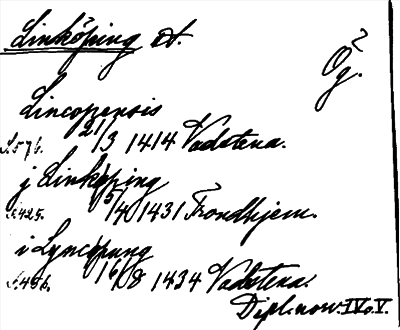 Linköping st.
Ög.
Lincopensis
S. 576. 21/3 1414 Vadstena.
j Linköping
S. 425. 5/4 1431 Trondhjem.
i Lyncöpung
S. 456. 16/8 1434 Vadstena.
Dipl. norv. IV o. V.